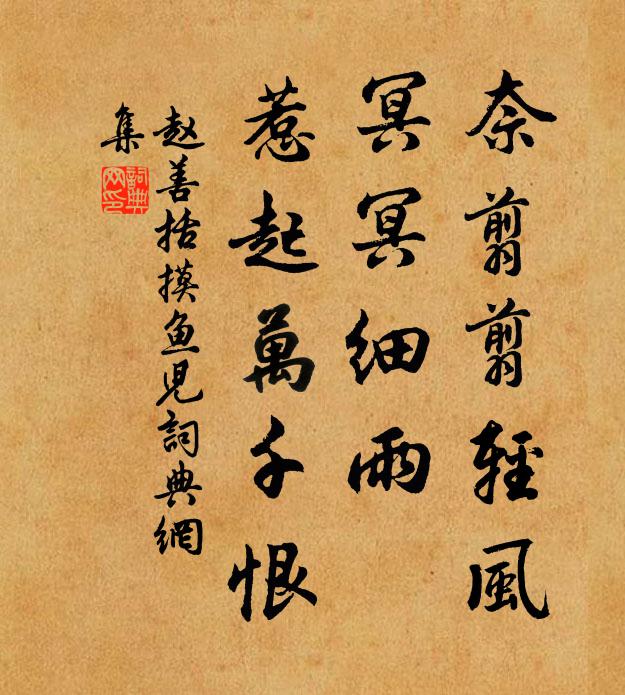 奈翦翦輕風
冥冥細雨
惹起萬千恨
赵善括摸鱼児詞典網
集
詞典
网印